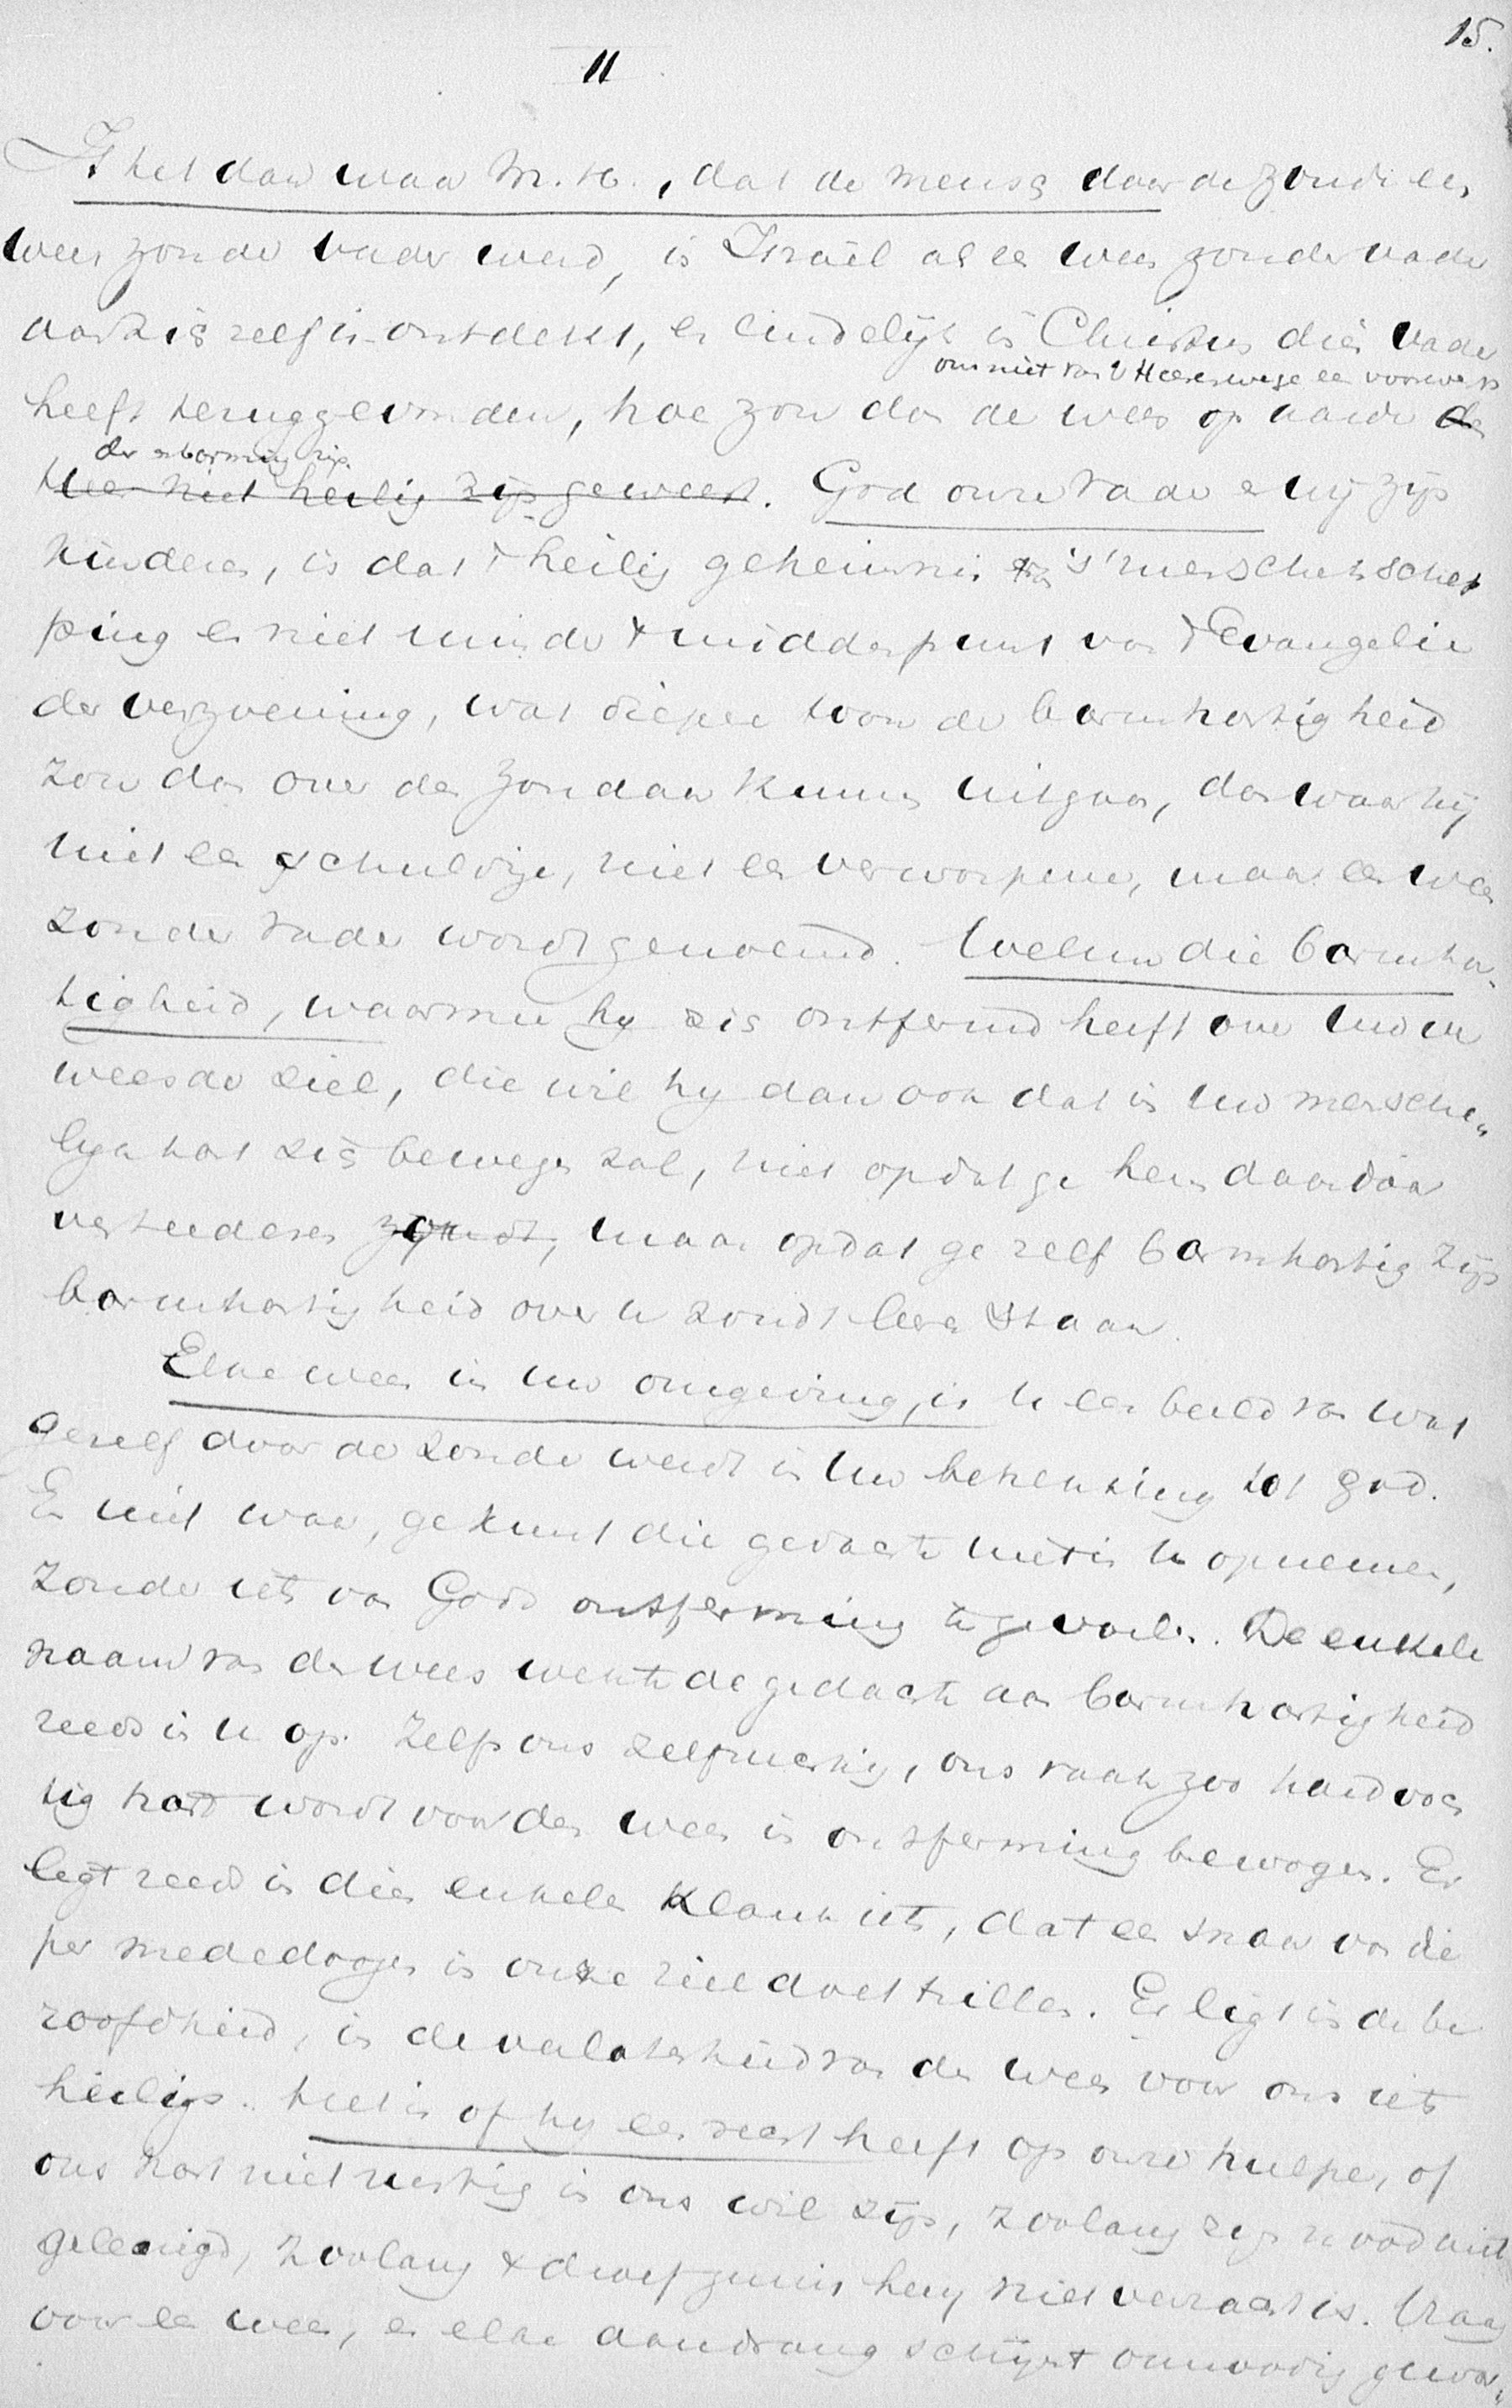 15.
II
Is het dan waar M. H., dat de mensch door de zonde een
wees zonder vader werd, is Israël als een wees zonder vader
aan zich zelf is ontdekt, en eindelijk in Christus dien Vader
om niet van 's Heerenwege een voorwerp
heeft teruggevonden, hoe zou dan de wees op aarde den
der erbarming zijn.
Heer niet heilig zijn geweest. God onze Vader en wij zijn
kinderen, is dat 't heilig geheimnis van 's menschenschep
ping en niet minder 't middenpunt van 't Evangelie
der verzoening, wat dieper toon der barmhartigheid
zou dan over den zondaar kunnen uitgaan, dan waar hij
niet een schuldige, niet een verworpene, maar een wees
zonder vader wordt genoemd. Welnu die barmhar-
tigheid, waarmee hy zich ontfermd heeft over uw ver
weesde ziel, die wil hy dan ook dat in uw menschen
lyk hart zich bewegen zal, niet opdat ge hem daardoor
verteederen zoudt, maar opdat ge zelf barmhartig zijn
barmhartigheid over u zoudt leeren staan.
Elke wees in uw omgeving, is u een beeld van wat
ge zelf door de zonde werdt in uw betrekking tot God.
En niet waar, ge kunt die gedachte niet in u opnemen,
zonder iets van Gods ontferming te gevoelen. De enkele
naam van de wees wekt de gedachte aan barmhartigheid
reeds in u op. Zelfs ons zelfzuchtig, ons vaak zoo hardvoch
tig hart wordt voor den wees in ontferming bewogen. Er
legt reeds in dien enkelen klank iets, dat een snaar van die
per mededogen in onze ziel doet trillen. Er ligt in de be
roofdheid, in de verlatenheid van den wees voor ons iets
heiligs. Het is of hy een recht heeft op onze hulpe, of
ons hart niet rustig in ons wil zijn, zoolang zijn nood niet
gelenigd, zoolang 't droef gemis hem niet verzacht is. Vraag
voor een wees, en elke aandrang schijnt onnoodig gewor